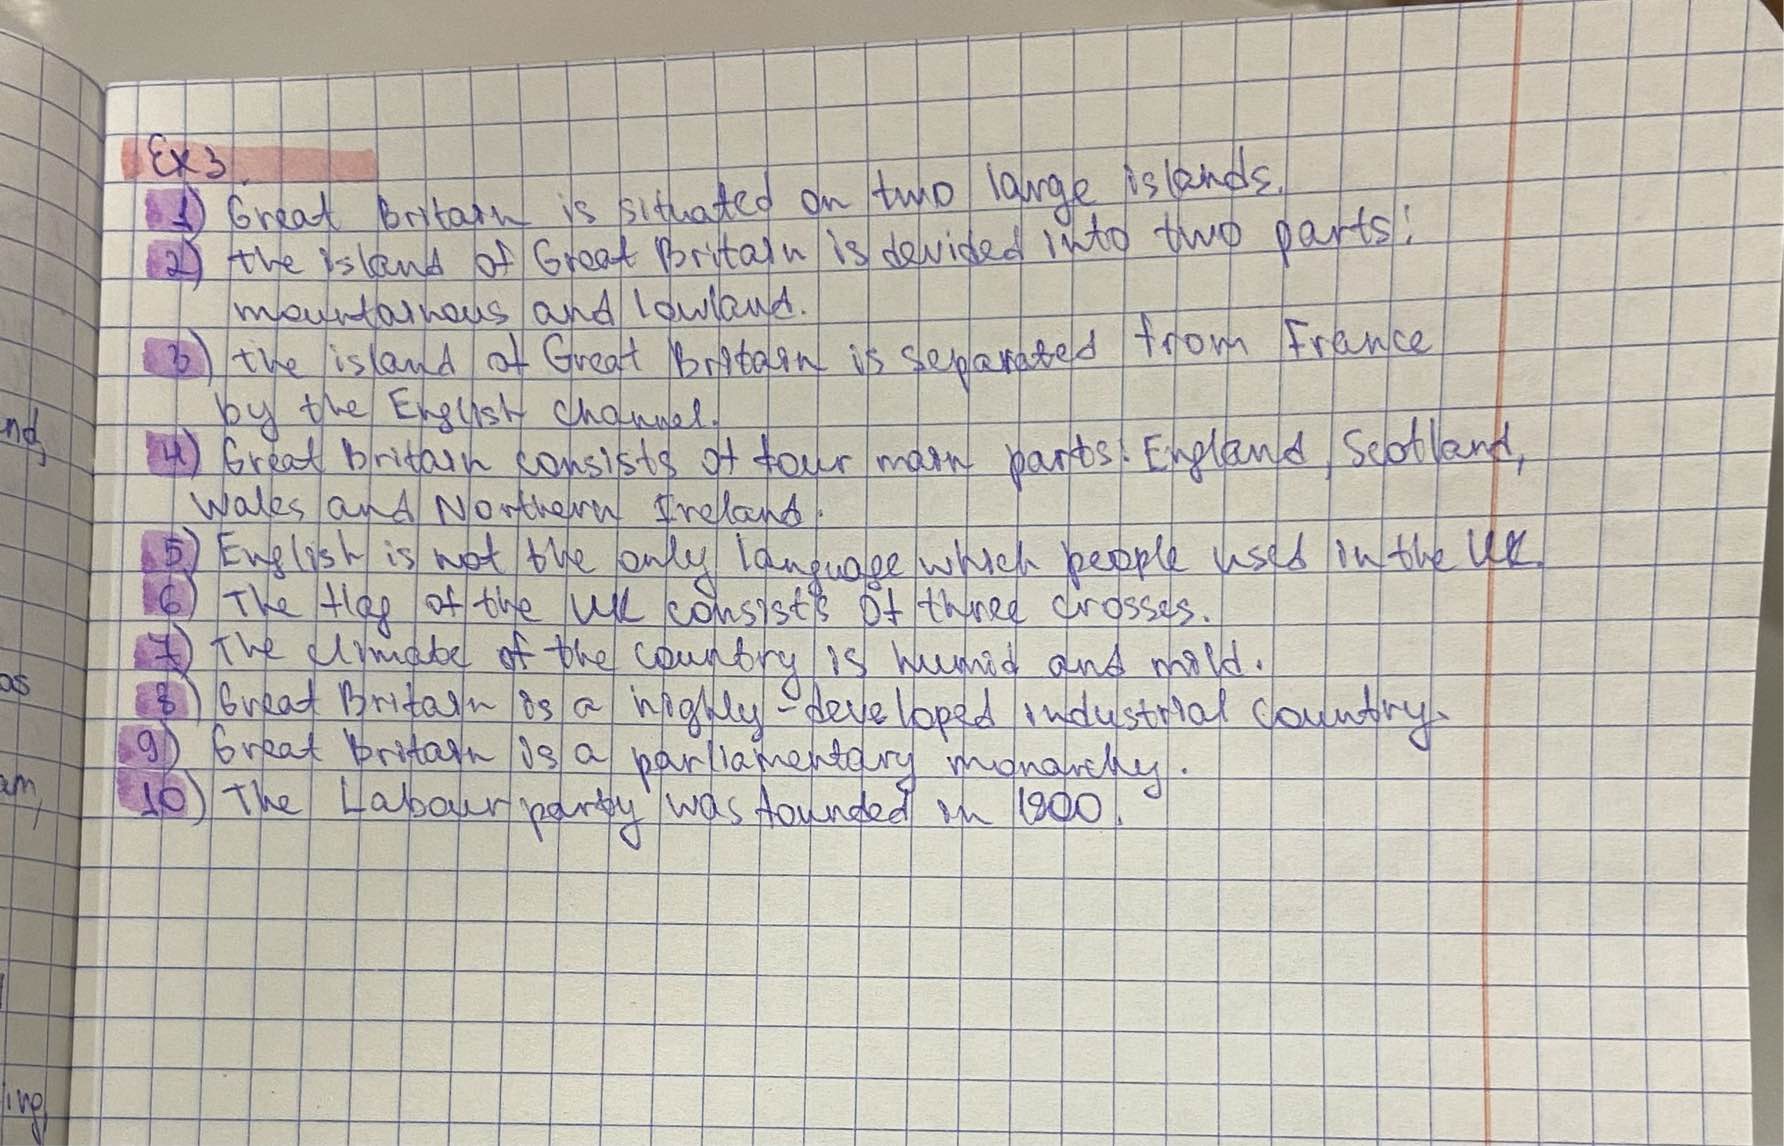 Ex 3.
1) Great Britain is situated on two large islands.
2) the island of Great Britain is devided into two parts:
mountainous and lowland.
3) the island of Great Britain is separated from France
by the English channel.
nd,
4) Great Britain consists of four main parts: England, Scotland,
Wales and Northern Ireland.
5) English is not the only language which people used in the UK.
6) The flag of the UK consists of three crosses.
7) The climate of the country is humid and mild.
as
8) Great Britain is a highly-developed industrial country.
9) Great Britain is a parliamentary monarchy.
am,
10) The Labour party was founded in 1900.
ing